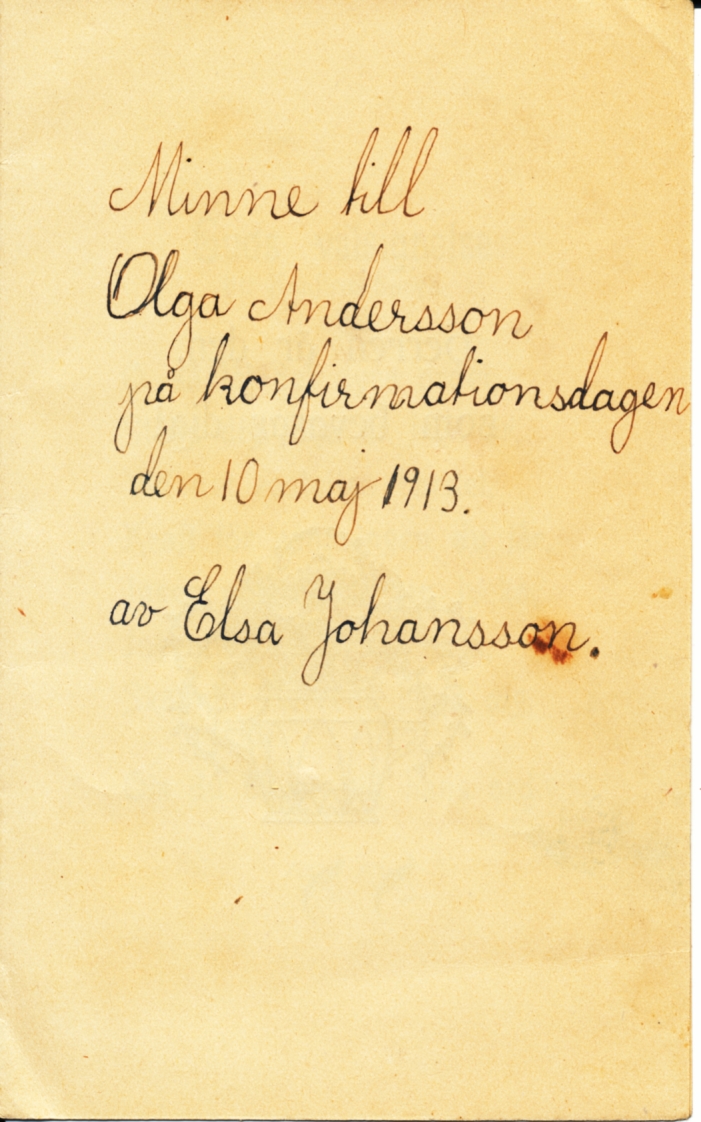 Minne till
Olga Andersson
på konfirmationsdagen
den 10 maj 1913.
av Elsa Johansson.